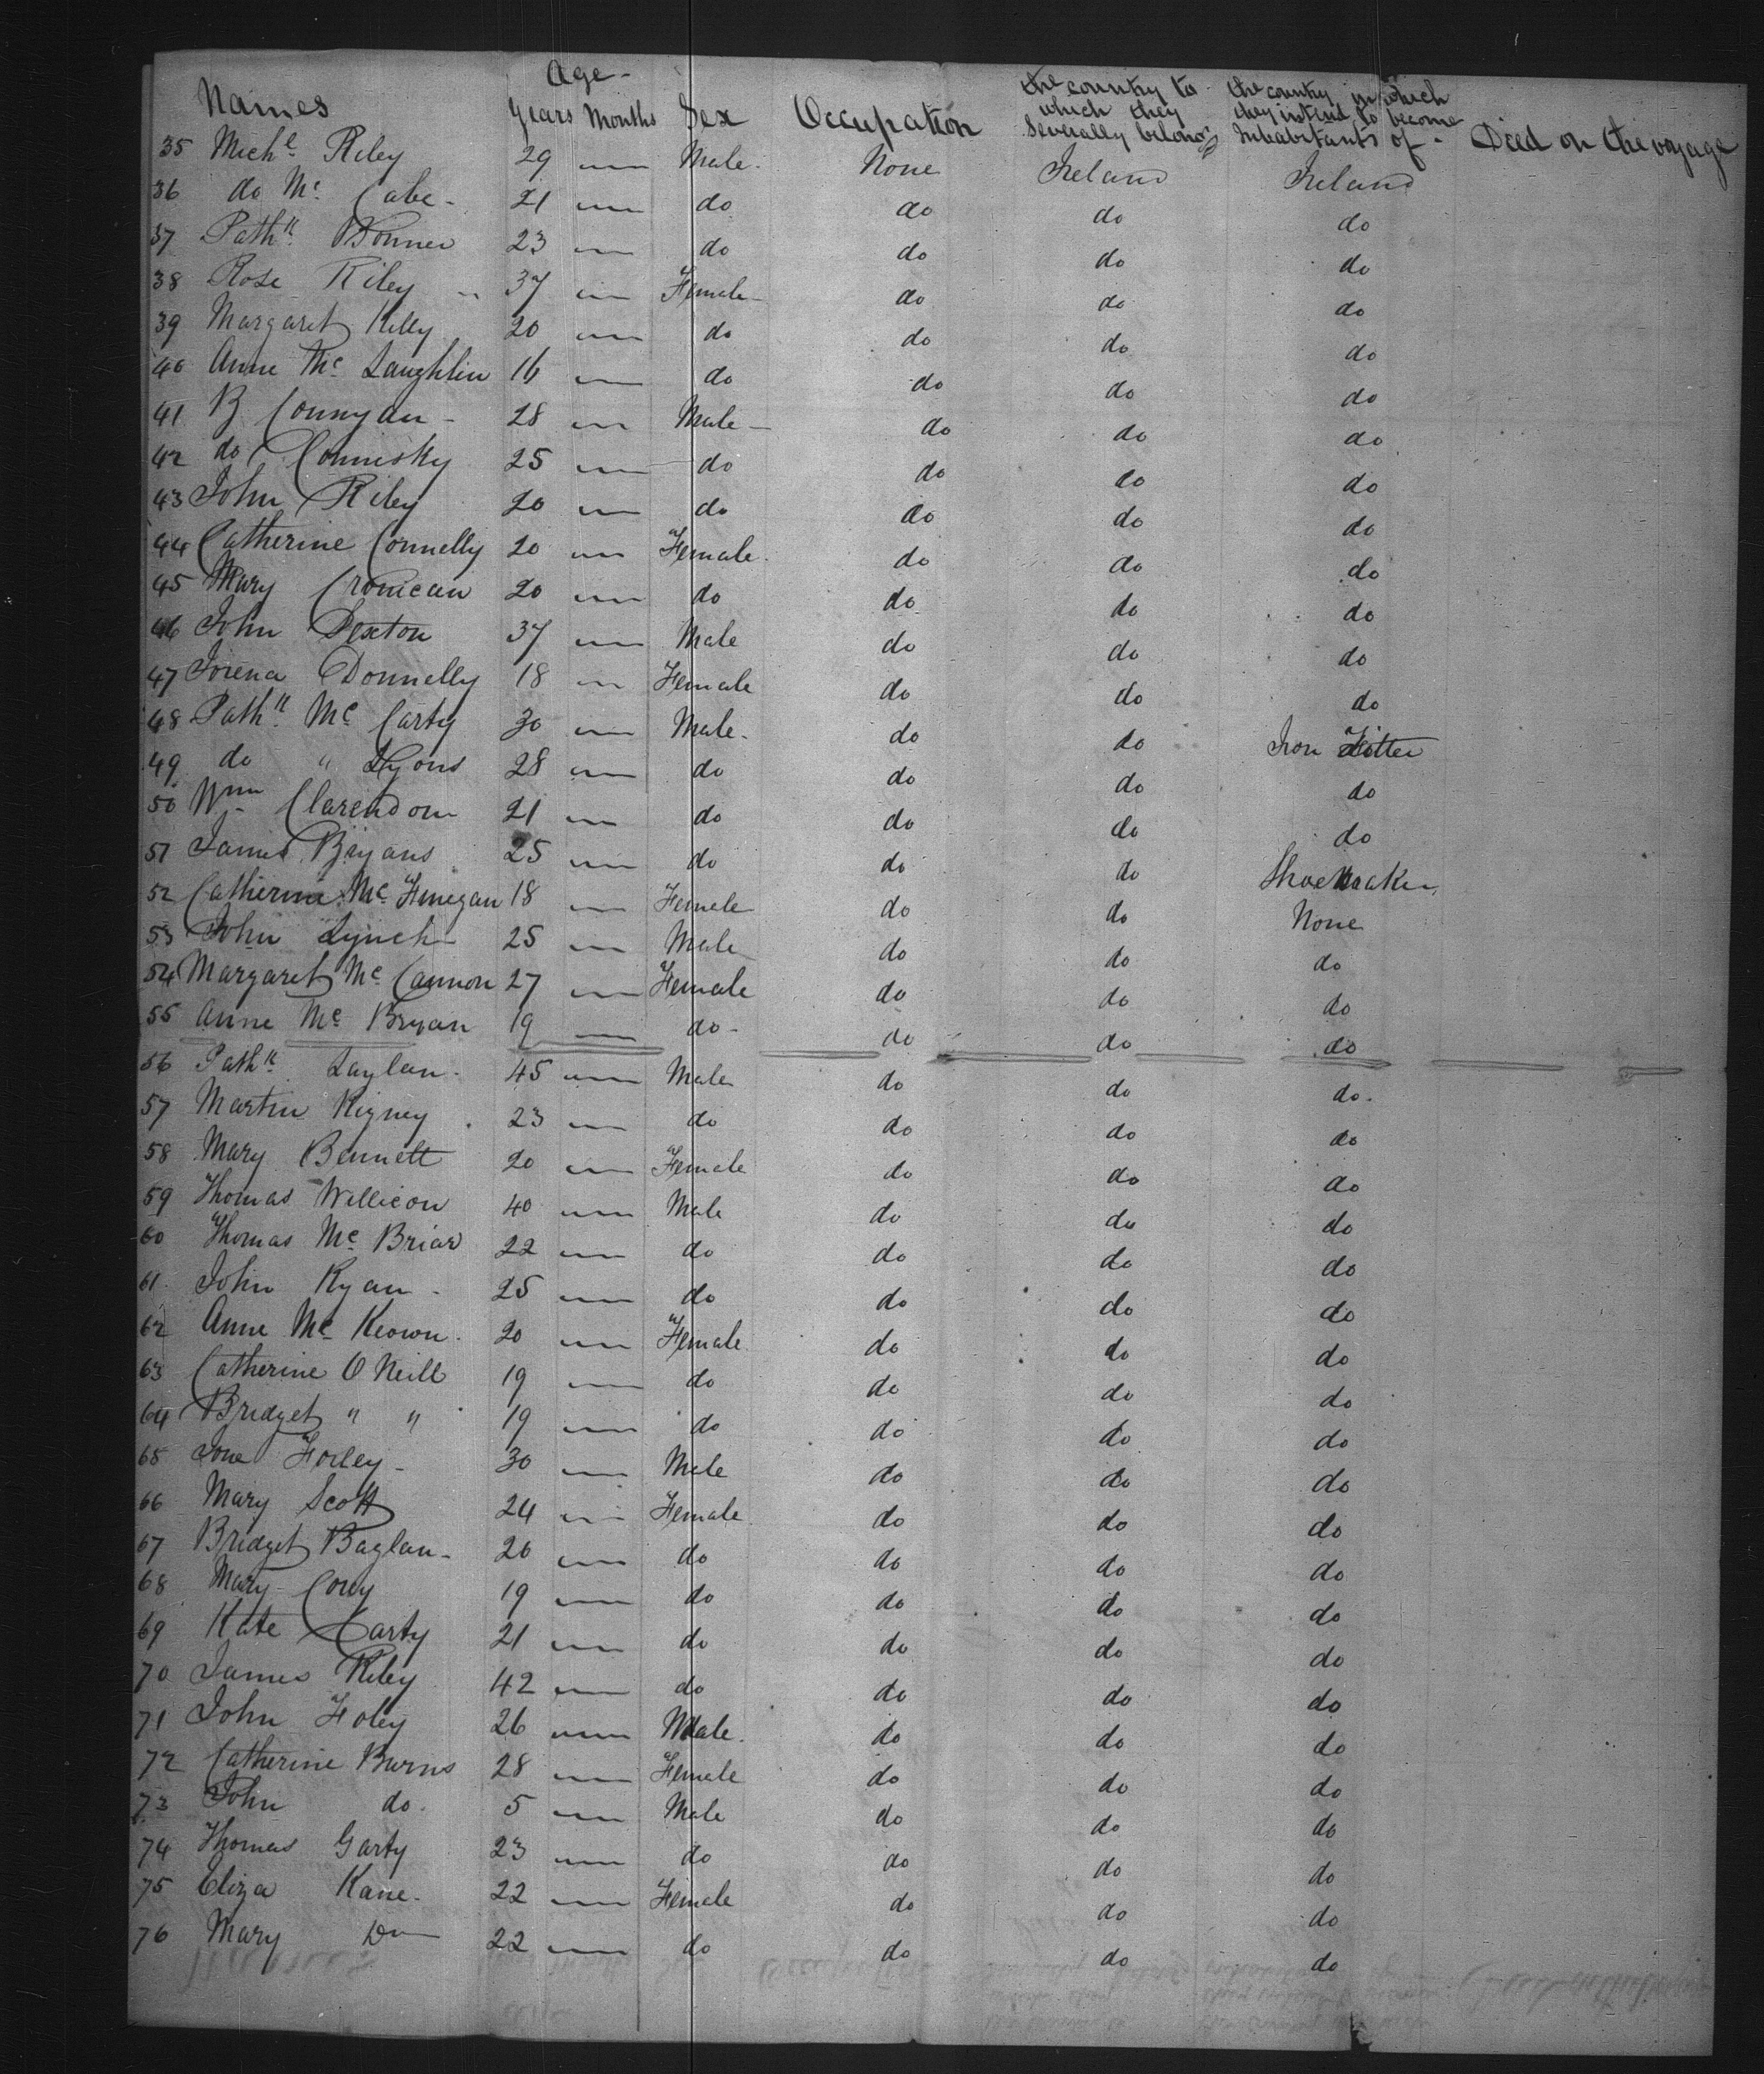 Age -
Names Years Months Sex Occupation the country to which they severally belong the country in which they intend to become Inhabitants of - Died on the voyage
35 Michl Riley 29 Male None Ireland Ireland
36 do Mc Cabe - 21 do do do do
37 Pathk Bonner 23 do do do do
38 Rose Riley 37 Female do do do
39 Margaret Kelly 20 do do do do
40 Anne Mc Laughlin 16 do do do do
41 B Connyan - 28 Male do do do
42 do Comiisky 25 do do do do
43 John Riley 20 do do do do
44 Catherine Connelly 20 Female do do do
45 Mary Cronican 20 do do do do
46 John Sexton 37 Male do do do
47 Donnelly 18 Female do do do
48 Pathk Mc Carty 30 Male do do Iron Fitter
49 do " Lyons 28 do do do do
50 Wm Clarendon 21 do do do do
51 James Bryans 25 do do do Shoe Maker
52 Catherine Mc Finegan 18 Female do do None
53 John Lynch 25 Male do do do
54 Margaret Mc Cannon 27 Female do do do
55 Anne Mc Bryan 19 do - do do do
56 Pathk Laylan - 45 Male do do do
57 Martin Rigney 23 do do do do
58 Mary Bennett 20 Female do do do
59 Thomas Willicon 40 Male do do do
60 Thomas Mc Briar 22 do do do do
61 John Ryan - 25 do do do do
62 Anne Mc Keown 20 Female do do do
63 Catherine O Neill 19 do do do do
64 Bridget " " 19 do do do do
65 Forley - 30 Male do do do
66 Mary Scott 24 Female do do do
67 Bridget Baylan - 20 do do do do
68 Mary Cony 19 do do do do
69 Kate Carty 21 do do do do
70 James Riley 42 do do do do
71 John Foley 26 Male do do do
72 Catherine Burns 28 Female do do do
73 John do 5 Male do do do
74 Thomas Garty 23 do do do do
75 Eliza Kane - 22 Female do do do
76 Mary Do 22 do do do do